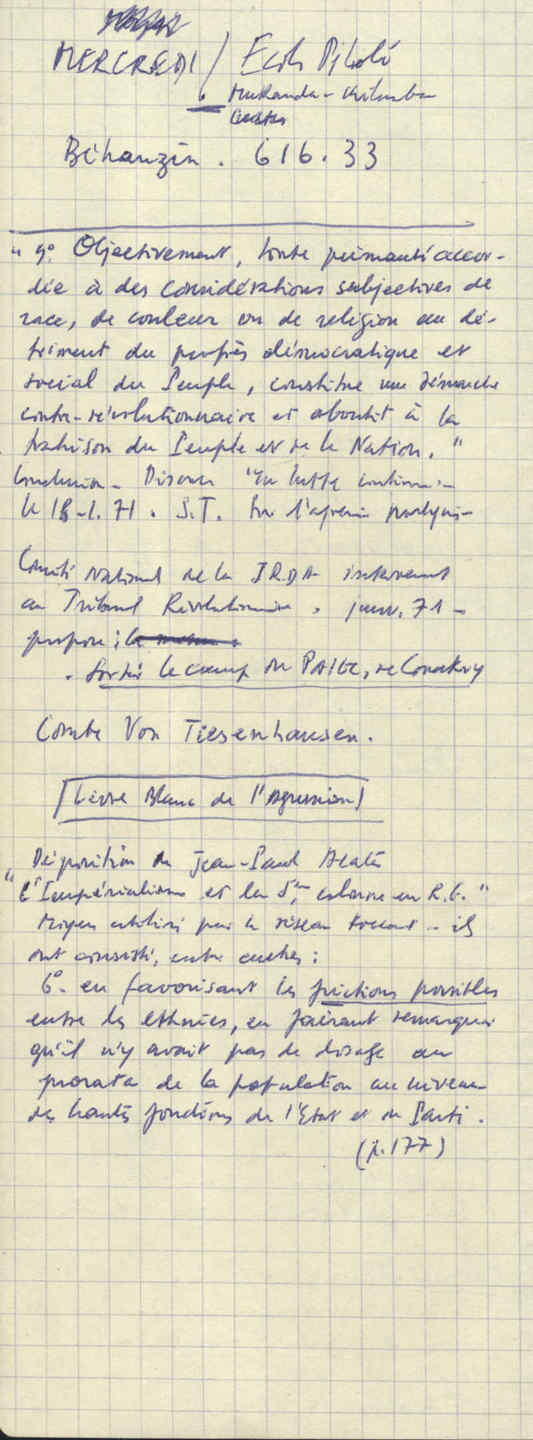 MERCREDI / Ecole
Mukanda - Kilumba
Béhanzin . 616.33
" 9°. Objectivement, toute primauté accor-
dée à des considérations subjectives de
race, de couleur ou de religion au dé-
triment du progrès démocratique et
social du Peuple, constitue une démarche
contre-révolutionnaire et aboutit à la
trahison du Peuple et de la Nation. "
Conclusion - Discours "La lutte continue"
le 18-1.71 . S.T. Sur l'agression
Comité National de la JRDA intervenant
au Tribunal Révolutionnaire . janv. 71 -
propose :
. Sortir le camp du PAIGC, de Conakry
Comte Von Tiesenhausen.
[Livre Blanc de l'Agression]
Déposition de Jean-Paul Alata
"L'Impérialisme et la 5ème colonne en R.G."
Moyens utilisés par le réseau - ils
ont consisté, entre autres :
6°- en favorisant les frictions possibles
entre les ethnies, en faisant remarquer
qu'il n'y avait pas de dosage au
prorata de la population au niveau
des hautes fonctions de l'Etat et du Parti .
(p.177)